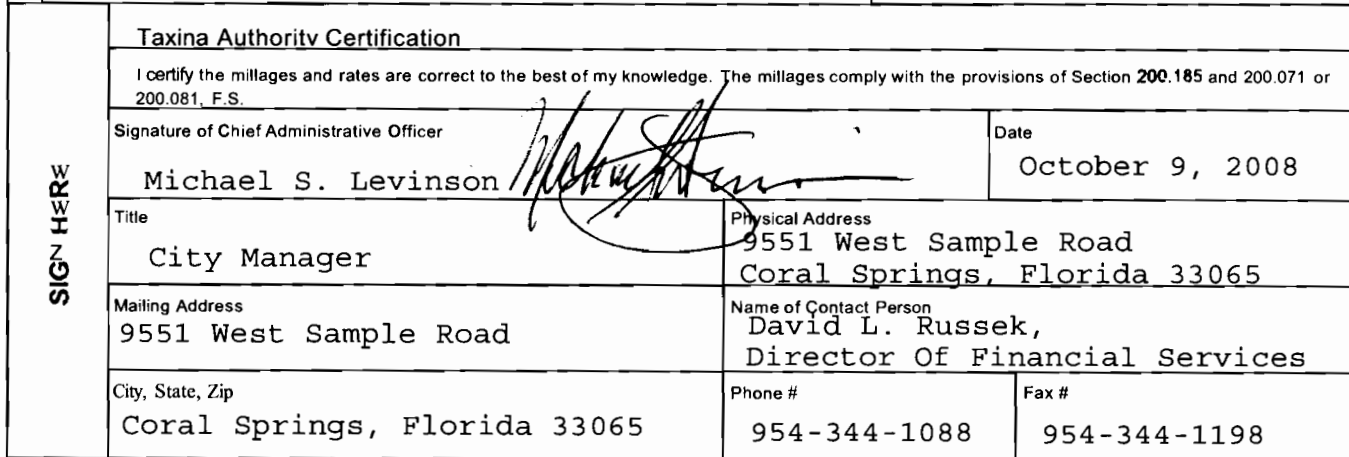 Taxina Authoritv Certification
I certify the millages and rates are correct to the best of my knowledge. The millages comply with the provisions of Section 200.185 and 200.071 or
200.081, F.S.
Signature of Chief Administrative Officer
Michael S. Levinson
Date
October 9, 2008
Title
City Manager
Physical Address
9551 West Sample Road
Coral Springs, Florida 33065
Mailing Address
9551 West Sample Road
Name of Contact Person
David L. Russek,
Director Of Financial Services
City, State, Zip
Coral Springs, Florida 33065
Phone #
954-344-1088
Fax #
954-344-1198
SIGN HERE